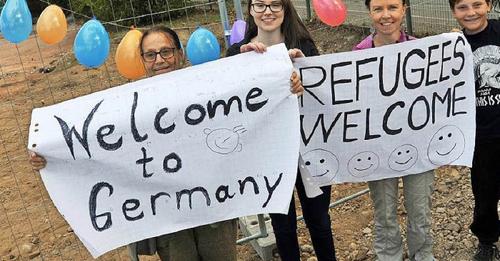 Welcome
to
Germany
REFUGEES
WELCOME
THIS IS